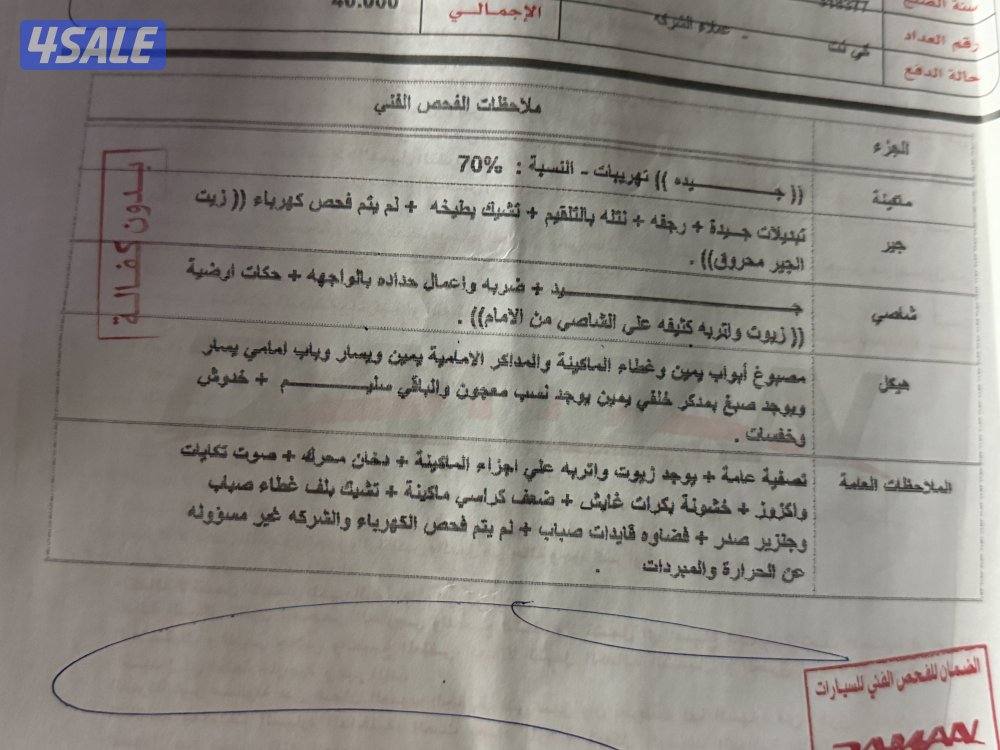 4SALE
سنة الصنع
318377
40.000
الإجمالي
عملاء الشركه -
رقم العداد
كي نت
حالة الدفع
الجزء
ملاحظات الفحص الفني
مكينة
(( جـــــــــيده )) تهريبات - النسبة : 70%
جير
تبديلات جـيدة + رجفه + نتله بالتلقيم + تشيك بطيخه + لم يتم فحص كهرباء (( زيت
الجير محروق)) .
شاصي
جـــــــــــــــــــــيد + ضربه واعمال حداده بالواجهه + حكات ارضية
(( زيوت واتربه كثيفه على الشاصي من الامام)) .
هيكل
مصبوغ أبواب يمين وغطاء الماكينة والمداكر الامامية يمين ويسار وباب امامي يسار
ويوجد صبغ بمدكر خلفي يمين يوجد نسب معجون والباقي سليــــــــم + خدوش
وخفسات .
الملاحظات العامة
تصفية عامة + يوجد زيوت واتربه علي اجزاء الماكينة + دخان محرك + صوت تكايات
واكزوز + خشونة بكرات غايش + ضعف كراسي ماكينة + تشيك بلف غطاء صباب
وجنزير صدر + فضاوه قايدات صباب + لم يتم فحص الكهرباء والشركه غير مسؤوله
عن الحرارة والمبردات .
بدون كفالة
الضمان للفحص الفني للسيارات